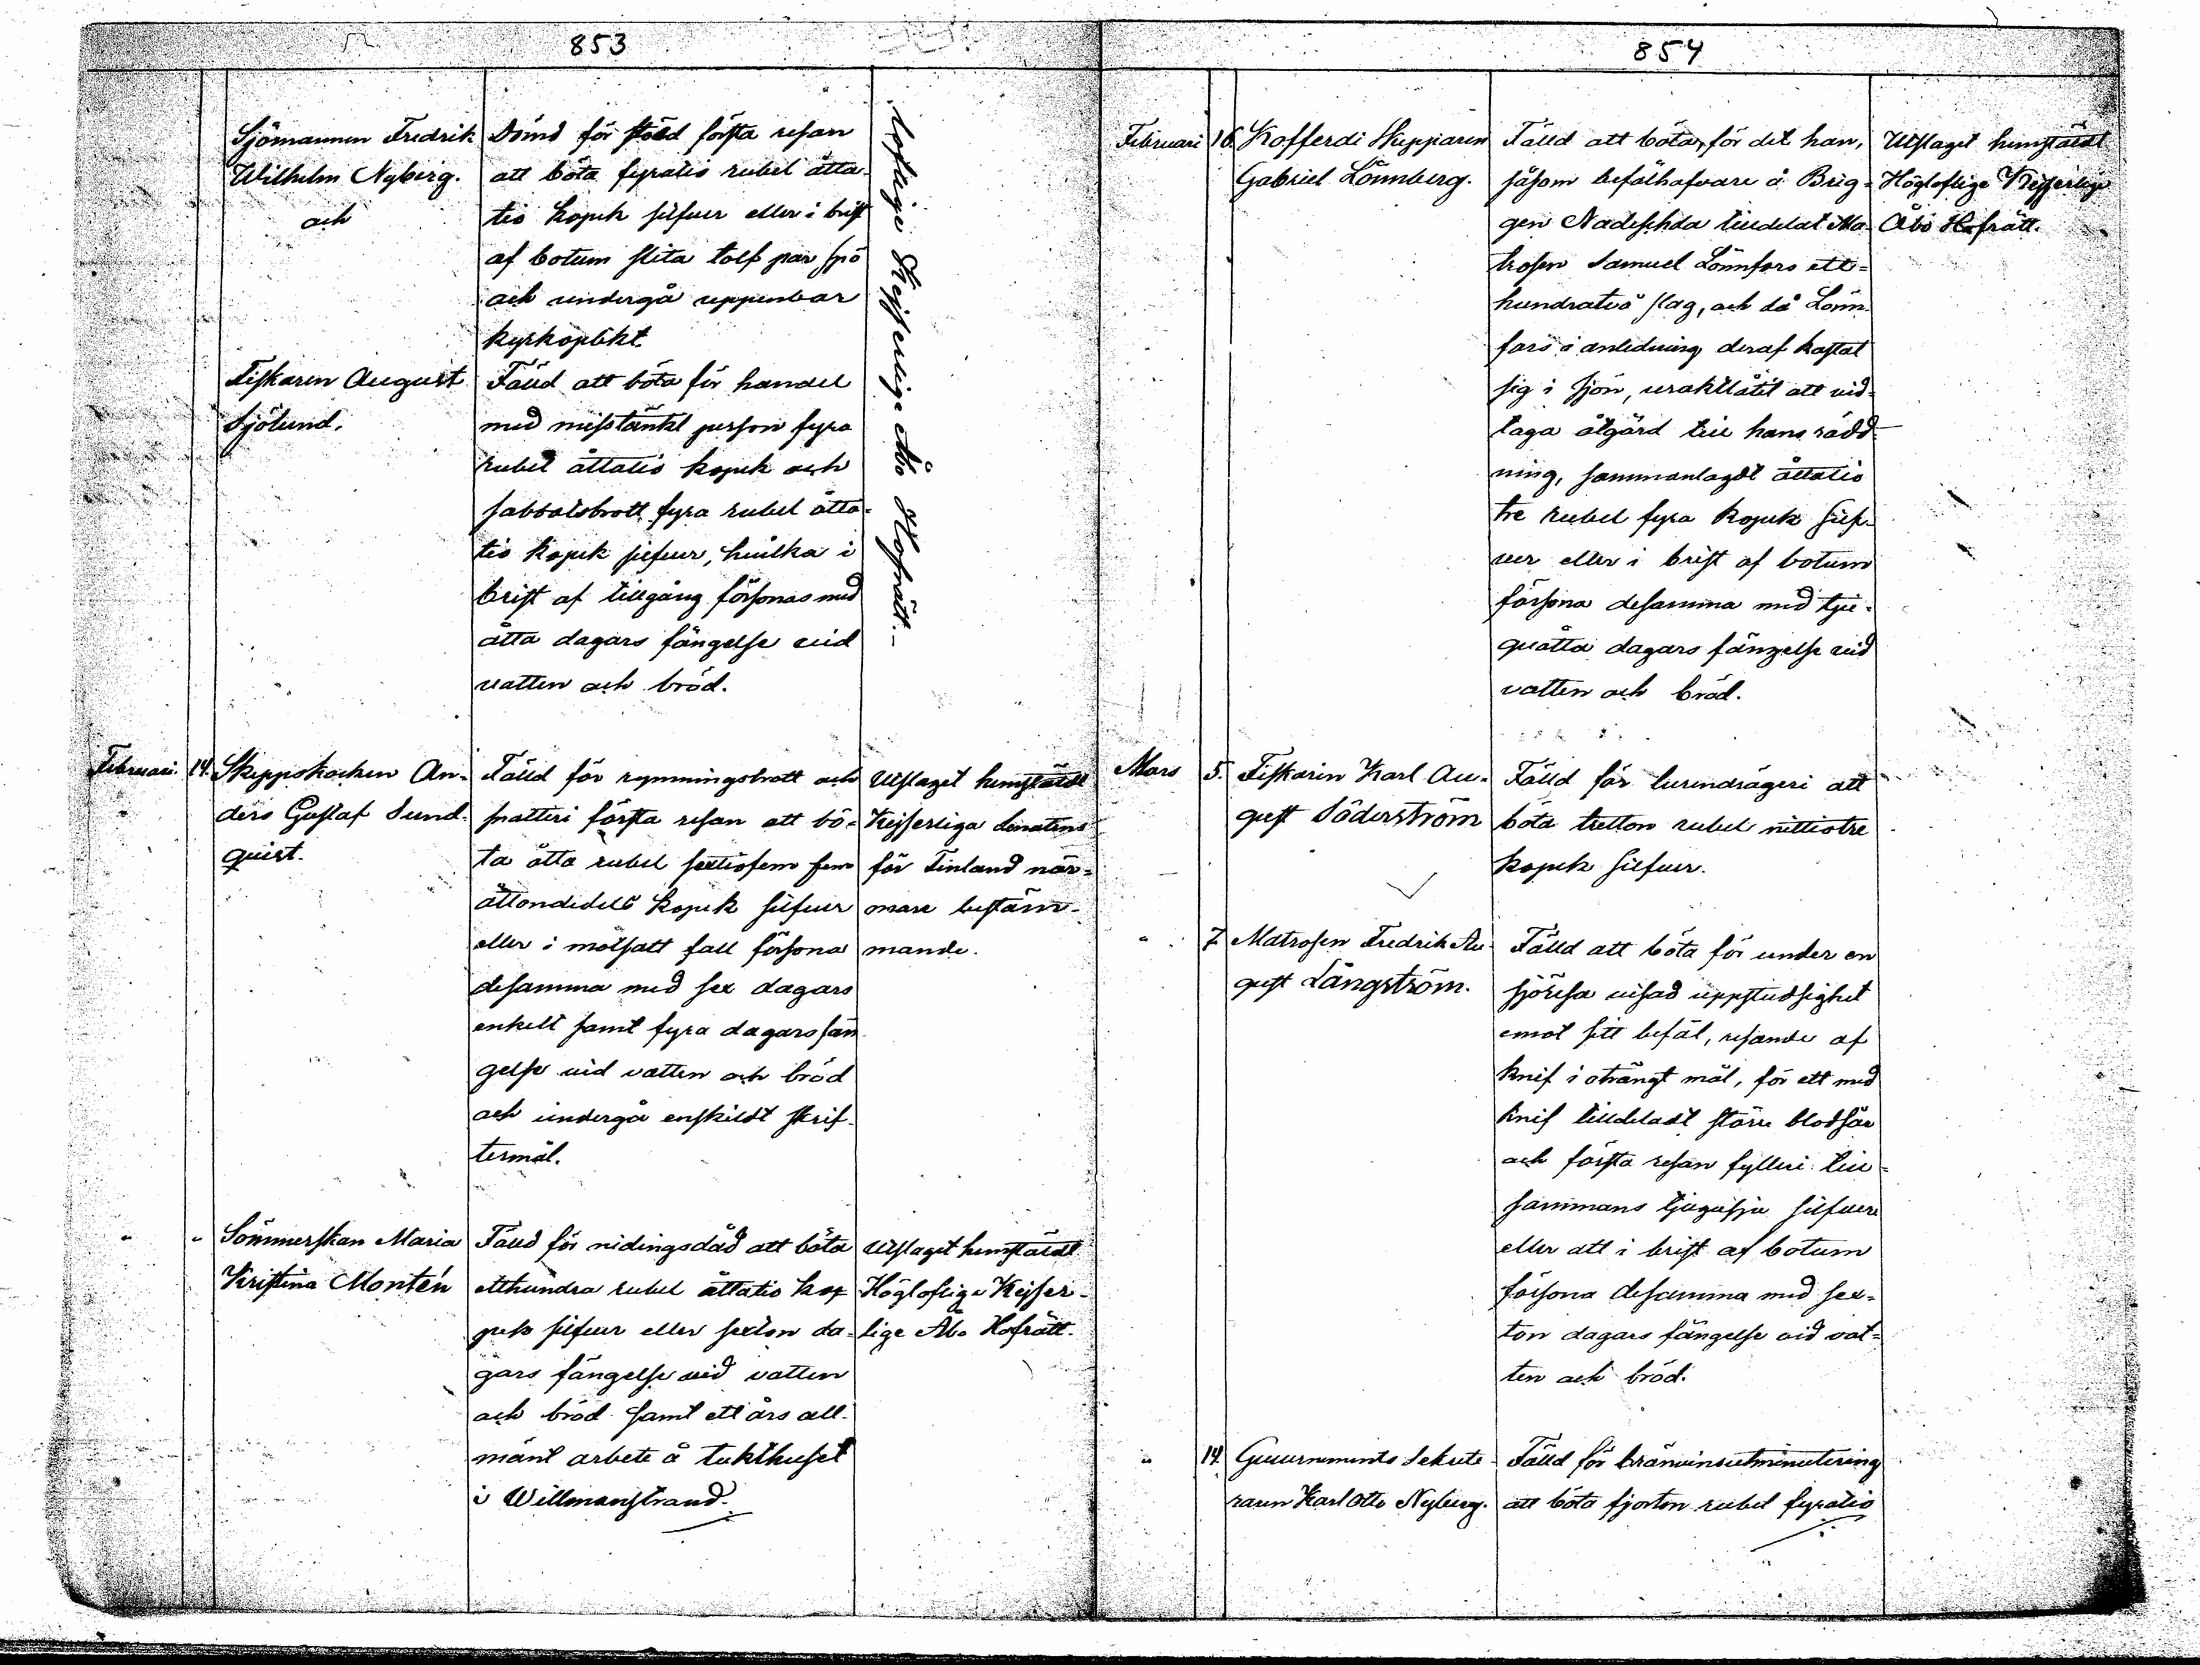 853
Sjömannen Fredrik
Wilhelm Nyberg.
och
Dömd för stöld första resan
att böta fyratio rubel åtta-
tio kopek silfver eller i brist
af botum slita tolf par spö
och undergå uppenbar
kyrkoplikt.
loflige Kejserlige Åbo Hofrätt.
Fiskaren August
Sjölund.
Fälld att böta för handel
med misstänkt person fyra
rubel åttatio kopek och
sabbatsbrott fyra rubel åtta-
tio kopek silfver, hvilka i
brist af tillgång försonas med
åtta dagars fängelse vid
vatten och bröd.
Februari. 14. Skeppskocken An-
ders Gustaf Sund-
qvist.
Fälld för rymningsbrott och
snatteri första resan att bö-
ta åtta rubel sextiofem fem
åttondedels kopek silfver
eller i motsatt fall försona
desamma med sex dagars
enkelt samt fyra dagars fän
gelse vid vatten och bröd
och undergå enskildt skrif-
termål.
Utslaget hemstäldt
Kejserliga Senatens
för Finland när-
mare bestäm-
mande.
" " Sömmerskan Maria
Kristina Montén
Fälld för nidingsdåd att böta
etthundra rubel åttatio ko-
pek silfver eller sexton da-
gars fängelse vid vatten
och bröd samt ett års all-
mänt arbete å tukthuset
i Willmanstrand.
Utslaget hemstäldt
Högloflige Kejser-
lige Åbo Hofrätt.
854
Februari 16. Kofferdi Skepparen
Gabriel Lönnberg.
Fälld att böta, för det han,
såsom befälhafvare å Brig-
gen Nadeschda tilldelat Ma-
trosen Samuel Lönnfors ett-
hundratvå slag, och då Lönn-
fors i anledning deraf kastat
sig i sjön, uraktlåtit att vid-
taga åtgärd till hans rädd-
ning, sammanlagdt åttatio
tre rubel fyra kopek silf-
ver eller i brist af botum
försona desamma med tju-
guåtta dagars fängelse vid
vatten och bröd.
Utslaget hemstäldt
Högloflige Kejserlige
Åbo Hofrätt.
Mars 5. Fiskaren Karl Au-
gust Söderström
Fälld för lurendrägeri att
böta tretton rubel nittiotre
kopek silfver.
" 7. Matrosen Fredrik Au-
gust Långström.
Fälld att böta för under en
sjöresa visad uppstudsighet
emot sitt befäl, resande af
knif i oträngt mål, för ett med
knif tilldeladt större blodsår
och första resan fylleri till-
sammans tjugusju silfver
eller att i brist af botum
försona desamma med sex-
ton dagars fängelse vid vat-
ten och bröd.
" 14. Guvernements Sekrete-
raren Karl Otto Nyberg.
Fälld för bränvinsutminutering
att böta fjorton rubel fyratio